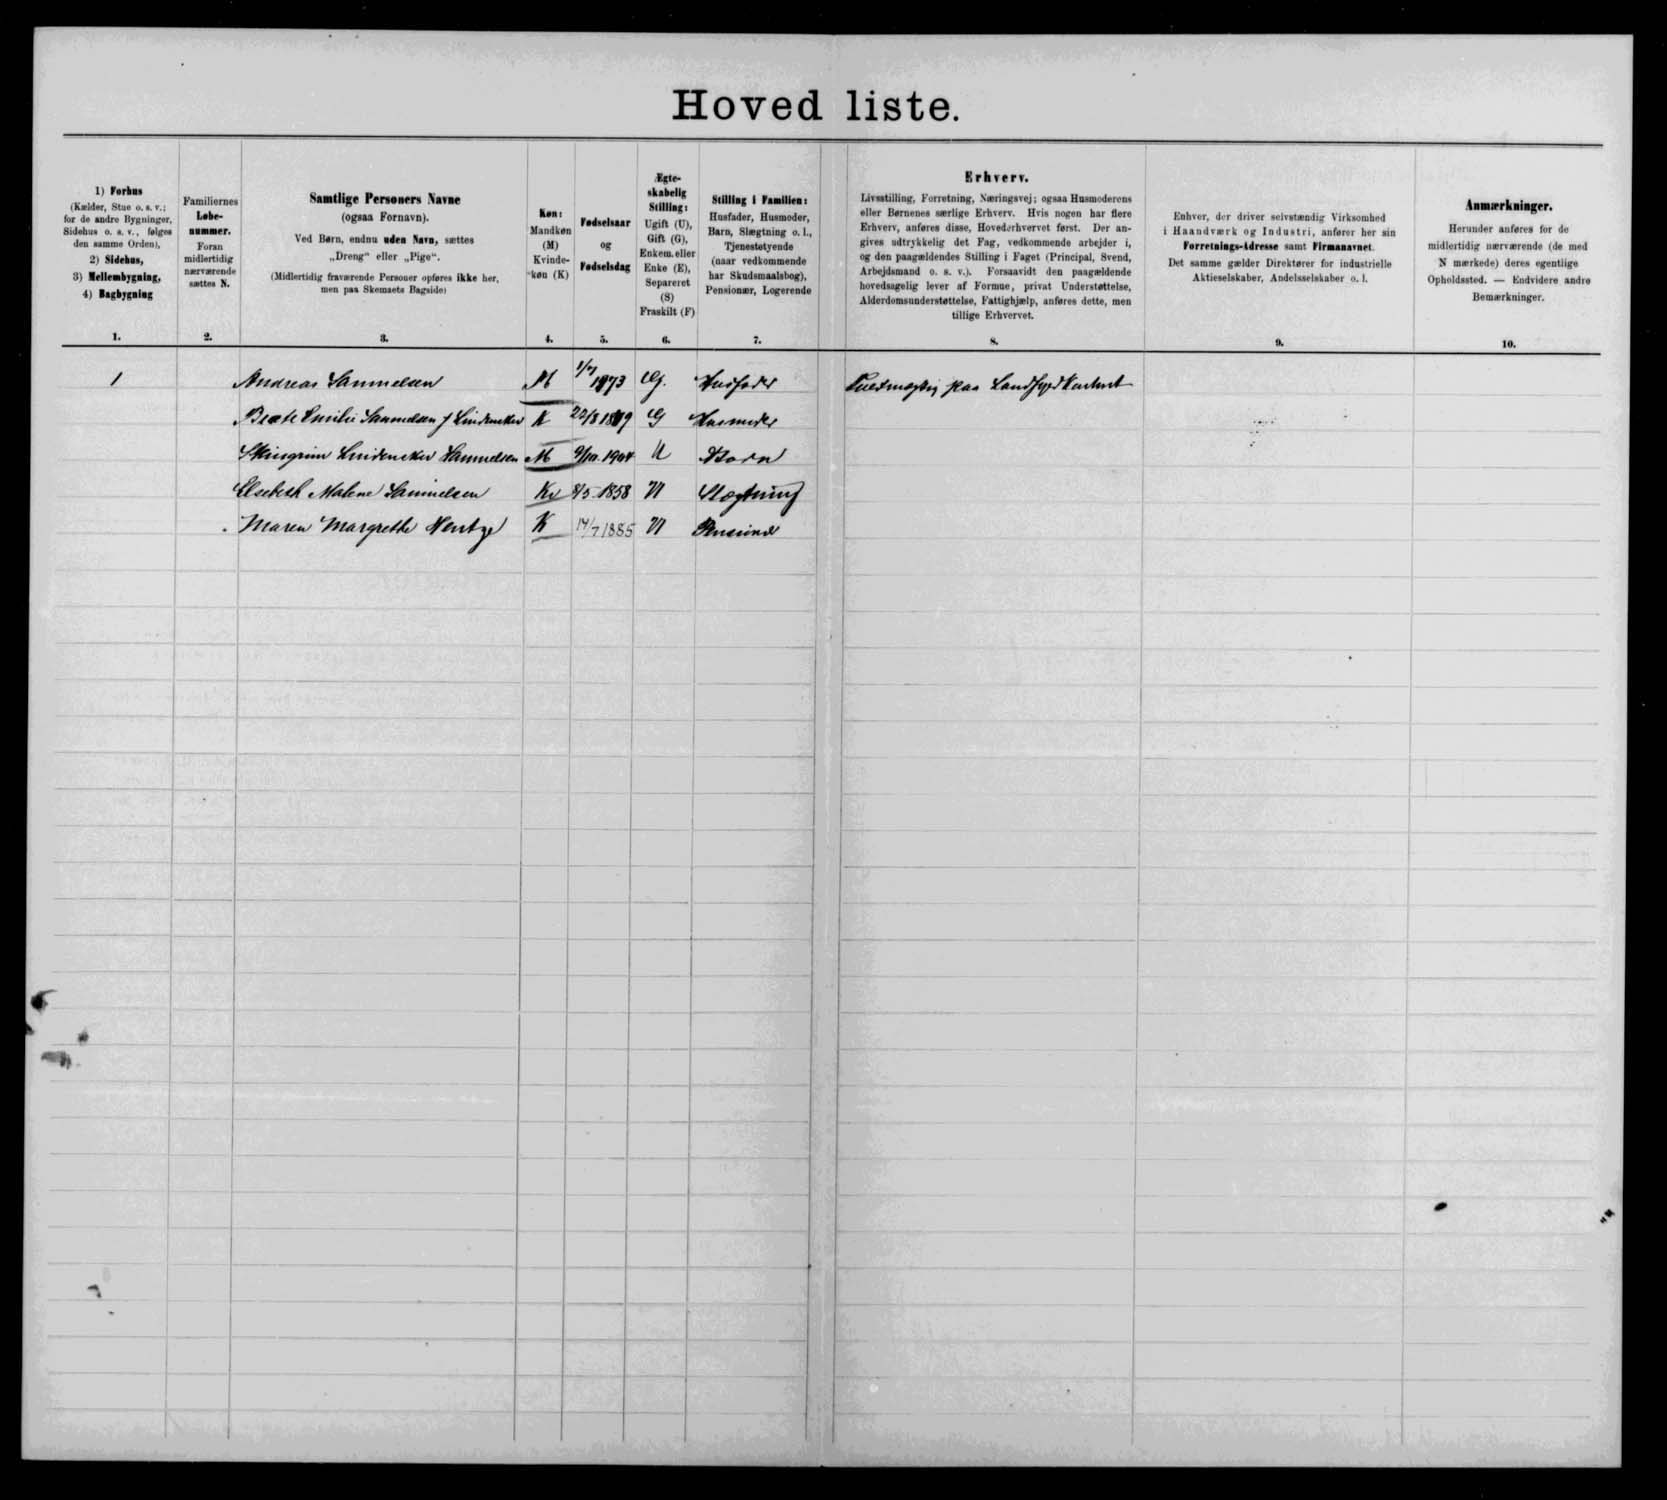 Hoved liste.
1) Forhus
(Kælder, Stue o. s. v.;
for de andre Bygninger,
Sidehus o. s. v., følges
den samme Orden),
2) Sidehus,
3) Mellembygning,
4) Bagbygning
1.
Familiernes
Løbe-
nummer.
Foran
midlertidig
nærværende
sættes N.
2.
Samtlige Personers Navne
(ogsaa Fornavn).
Ved Børn, endnu uden Navn, sættes
„Dreng“ eller „Pige“.
(Midlertidig fraværende Personer opføres ikke her,
men paa Skemaets Bagside)
3.
Køn:
Mandkøn
(M)
Kvinde-
køn (K)
4.
Fødselsaar
og
Fødselsdag
5.
Ægte-
skabelig
Stilling:
Ugift (U),
Gift (G),
Enkem. eller
Enke (E),
Separeret
(S)
Fraskilt (F)
6.
Stilling i Familien:
Husfader, Husmoder,
Barn, Slægtning o. l.,
Tjenestetyende
(naar vedkommende
har Skudsmaalsbog),
Pensionær, Logerende
7.
Erhverv.
Livsstilling, Forretning, Næringsvej; ogsaa Husmoderens
eller Børnenes særlige Erhverv. Hvis nogen har flere
Erhverv, anføres disse, Hovederhvervet først. Der an-
gives udtrykkelig det Fag, vedkommende arbejder i,
og den paagældendes Stilling i Faget (Principal, Svend,
Arbejdsmand o. s. v.). Forsaavidt den paagældende
hovedsagelig lever af Formue, privat Understøttelse,
Alderdomsunderstøttelse, Fattighjælp, anføres dette, men
tillige Erhvervet.
8.
Enhver, der driver selvstændig Virksomhed
i Haandværk og Industri, anfører her sin
Forretnings-Adresse samt Firmanavnet.
Det samme gælder Direktører for industrielle
Aktieselskaber, Andelsselskaber o. l.
9.
Anmærkninger.
Herunder anføres for de
midlertidig nærværende (de med
N mærkede) deres egentlige
Opholdssted. — Endvidere andre
Bemærkninger.
10.
1 Andreas Samuelsen M 1/7 1873 G. Husfader Fuldmægtig paa Landfogedkontoret
Beate Emilie Samuelsen f Lindenskov K G Husmoder
Lindenskov Samuelsen M 9/10. 1904 U Barn
Elsebeth Malene Samuelsen Kv 8/5. 1858 U Slægtning
Maren Margrethe K 14/7 1885 U